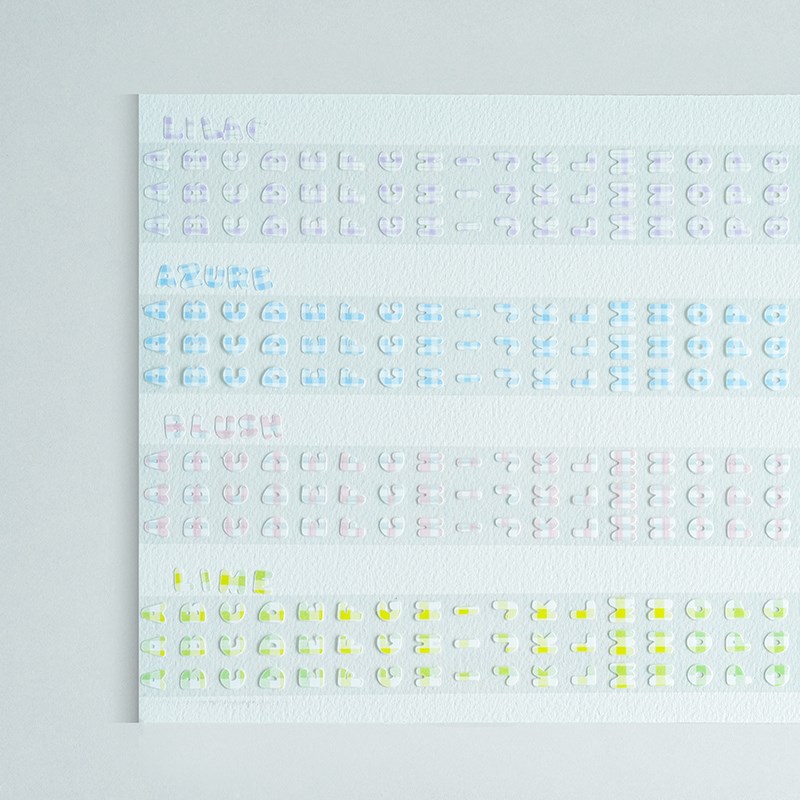 LILAC
A B C D E F G H I J K L M N O P Q
A B C D E F G H I J K L M N O P Q
A B C D E F G H I J K L M N O P Q
AZURE
A B C D E F G H I J K L M N O P Q
A B C D E F G H I J K L M N O P Q
A B C D E F G H I J K L M N O P Q
BLUSH
A B C D E F G H I J K L M N O P Q
A B C D E F G H I J K L M N O P Q
A B C D E F G H I J K L M N O P Q
LIME
A B C D E F G H I J K L M N O P Q
A B C D E F G H I J K L M N O P Q
A B C D E F G H I J K L M N O P Q